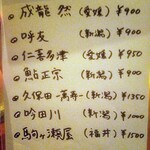 ◦ 成龍 然 (愛媛) ¥900
◦ 呼友 (新潟) ¥900
◦ 仁喜多津 (愛媛) ¥950
◦ 鮎正宗 (新潟) ¥900
◦ 久保田-萬寿- (新潟) ¥1350
◦ 吟田川 (新潟) ¥1000
◦ 駒ヶ瀬屋 (福井) ¥1500